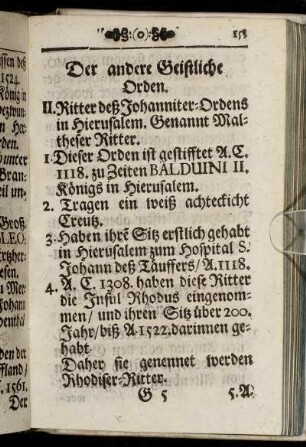 :(o):
151
Der andere Geistliche
Orden.
II. Ritter deß Johanniter-Ordens
in Hierusalem. Genannt Mal-
theser Ritter.
1. Dieser Orden ist gestifftet A. C.
1118. zu Zeiten BALDUINI II.
Königs in Hierusalem.
2. Tragen ein weiß achteckicht
Creutz.
3. Haben ihrē Sitz erstlich gehabt
in Hierusalem zum Hospital S.
Johann deß Täuffers / A. 1118.
4. A. C. 1308. haben diese Ritter
die Insul Rhodus eingenom-
men / und ihren Sitz über 200.
Jahr / biß A 1522. darinnen ge-
habt.
Daher sie genennet werden
Rhodiser-Ritter.
G 5
5. A.
ssen deß
1524.
König in
Her
orden.
Bran-
Groß
LEO:
Ertzher-
esen.
Johann
den der
1561.
Der